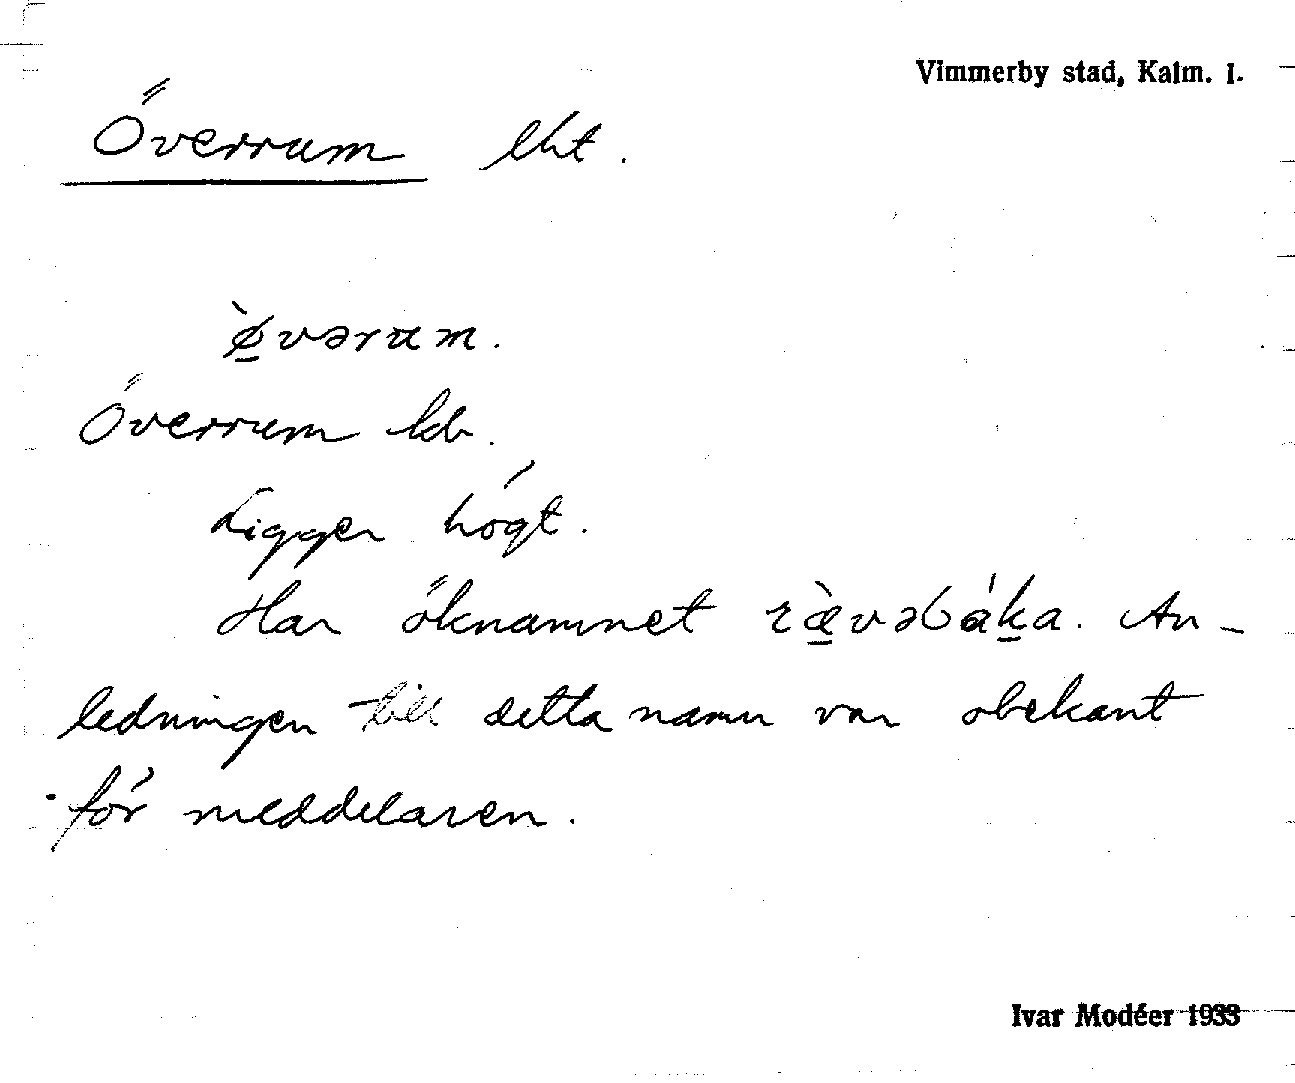 Vimmerby stad, Kalm. l.
Överrum lht.
ø̀vərum.
Överrum ldr.
Ligger högt.
Har öknamnet ræ̀vəbáka. An-
ledningen till detta namn var obekant
för meddelaren.
Ivar Modéer 1933